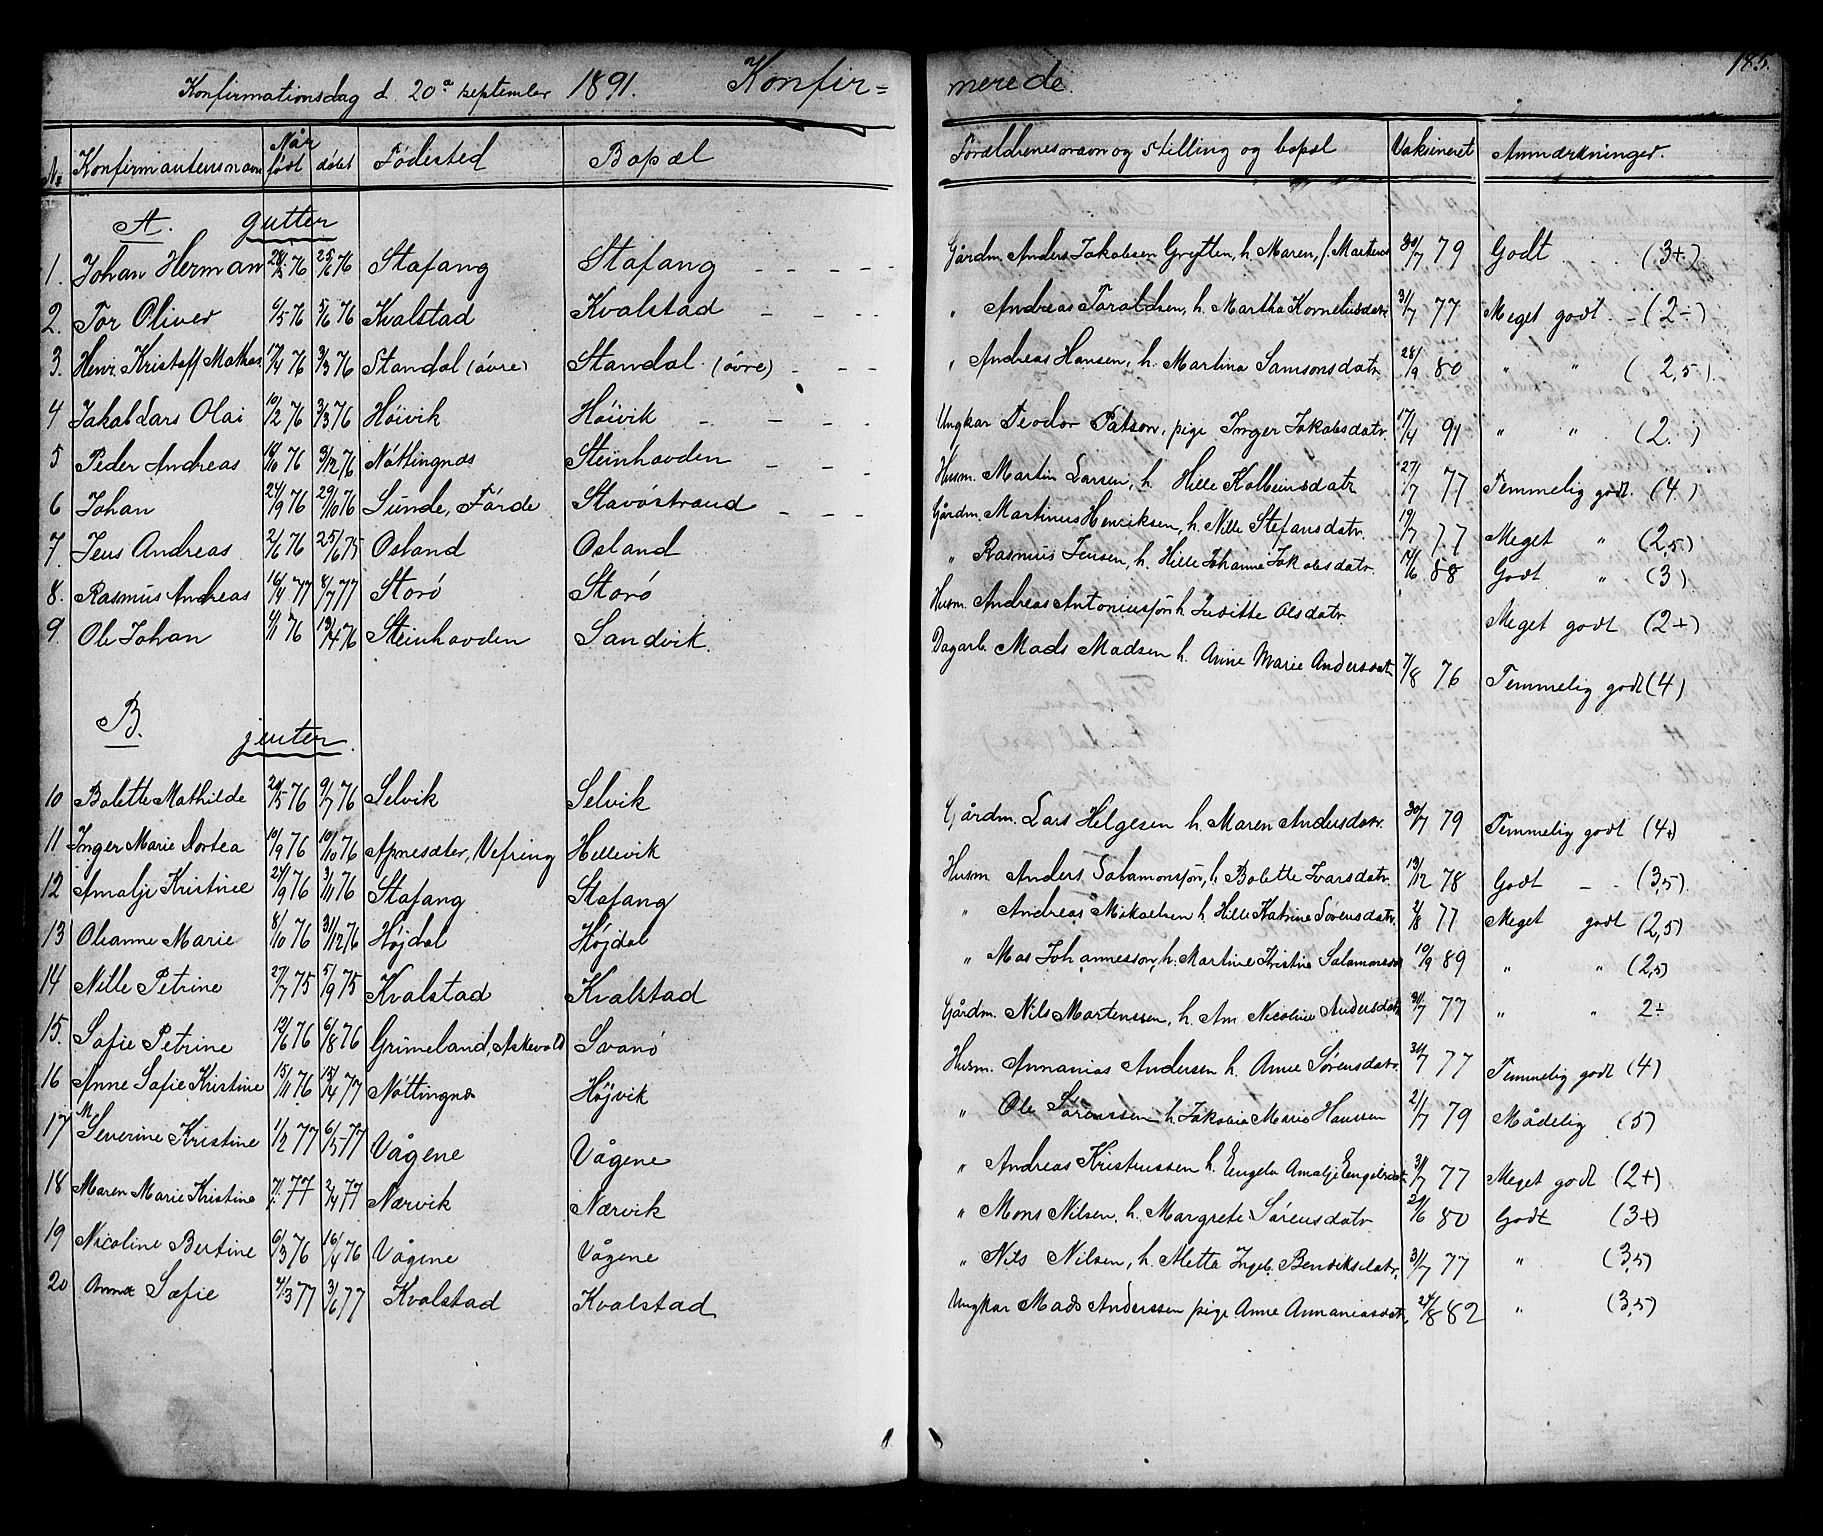 185.
Konfirmationsdag d. 20de september 1891. Konfir= merede.
No Konfirmantens navn Når født døbt Fødested Bopæl Forældrenes navn og stilling og bopæl Vaksineret Anmærkninger.
A. gutter
1. Johan Herman 76 25/6 76 Stafang Stafang Gårdm. Anders Jakobsen Grytten, h. Maren, f. 30/7 79 Godt (3+)
2. Tor Oliver 6/5 76 5/6 76 Kvalstad Kvalstad " Andreas Toraldsen, h. Martha Korneliusdatr 31/7 77 Meget godt - (2-)
3. Henr. Kristoff Mathas 17/4 76 3/3 76 Standal (øvre) Standal (øvre) " Andreas Hansen, h. Martina Samsonsdatr. 28/9 80 " " (2,5)
4 Jakob Lars Olai 10/2 76 3/3 76 Høivik Høivik Ungkar Teodor Patson, pige Inger Jakobsdatr 17/4 91 " " (2-)
5 Peder Andreas 18/10 76 3/12 76 Nøttingnæs Steinhovden Husm. Martin Larsen, h. Hille Kolbeinsdatr 27/7 77 Temmelig godt. (4)
6 Johan 24/9 76 29/10 76 Sunde, Førde Stavøstrand Gårdm. Martinus Henriksen, h. Nille Stefansdatr. 19/7 77 Meget " (2,5)
7. Jens Andreas 2/6 76 25/6 75 Osland Osland " Rasmus Jensen, h. Hille Johanne Jakobsdatr. 17/6 88 Godt " (3)
8. Rasmus Andreas 16/4 77 8/7 77 Storø Storø Husm. Andreas Antoniussøn h. Juditte Olsdatr " Meget godt (2+)
9. Ole Johan 76 13/4 76 Steinhovden Sandvik. Dagarb. Mads Madsen h. Anne Marie Andersdat 7/8 76 Temmelig godt (4)
B. jenter.
10 Bolette Mathilde 20/5 76 9/7 76 Selvik Selvik Gårdm. Lars Helgesen h. Maren Andersdatr. 30/7 79 Temmelig godt (4+)
11 Inger Marie Dortea 10/9 76 10/10 76 Apnesæter, Vefring Hellevik Husm Anders Salamonsøn, h. Bolette Ivarsdatr 13/12 78 Godt - - (3,5).
12 Amalje Kristine 24/9 76 3/11 76 Stafang Stafang " Andreas Mikaelsen h. Hille Katrine Sørensdatr. 2/8 77 Meget godt (2,5)
13 Oleanne Marie 8/10 76 31/12 76 Højdal Højdal " Mas Johannesson, h. Martine Kristine 10/9 89 " " (2,5)
14 Nille Petrine 27/7 75 5/9 75 Kvalstad Kvalstad Gårdm. Nils Martenssen, h. An. Nicoline Andersdatr 31/7 77 " " 2-
15. Sofie Petrine 12/6 76 6/8 76 Grimeland, Askevold Svanø Husm. Annanias Andersen h. Anne Sørensdatr. 31/7 77 Temmelig godt (4)
16 Anne Sofie Kristine 15/11 76 15/4 77 Nøttingnæs Højvik " Ole Sørenssen h. Jakobia Marie Hanssen 21/7 79 Mådelig (5)
17 M Severine Kristine 1/2 77 6/5 77 Vågene Vågene " Andreas Kristenssen h. Engela Amalje Engelsdat. 31/7 77 Meget godt (2+)
18 Maren Marie Kristine 7/1 77 2/4 77 Nærvik Nærvik " Mons Nilsen, h. Margrete Sørensdatr 29/6 80 Godt (3+)
19 Nicoline Bertine 6/3 76 16/4 76 Vågene Vågene " Nils Nilsen, h. Metta Ingeb. Bendiksdatr. 31/7 77 " (3,5)
20 Anna Sofie 4/3 77 3/6 77 Kvalstad Kvalstad Ungkar Mads Anderssen pige Anne Annaniasdatr. 24/8 82 " (3,5)